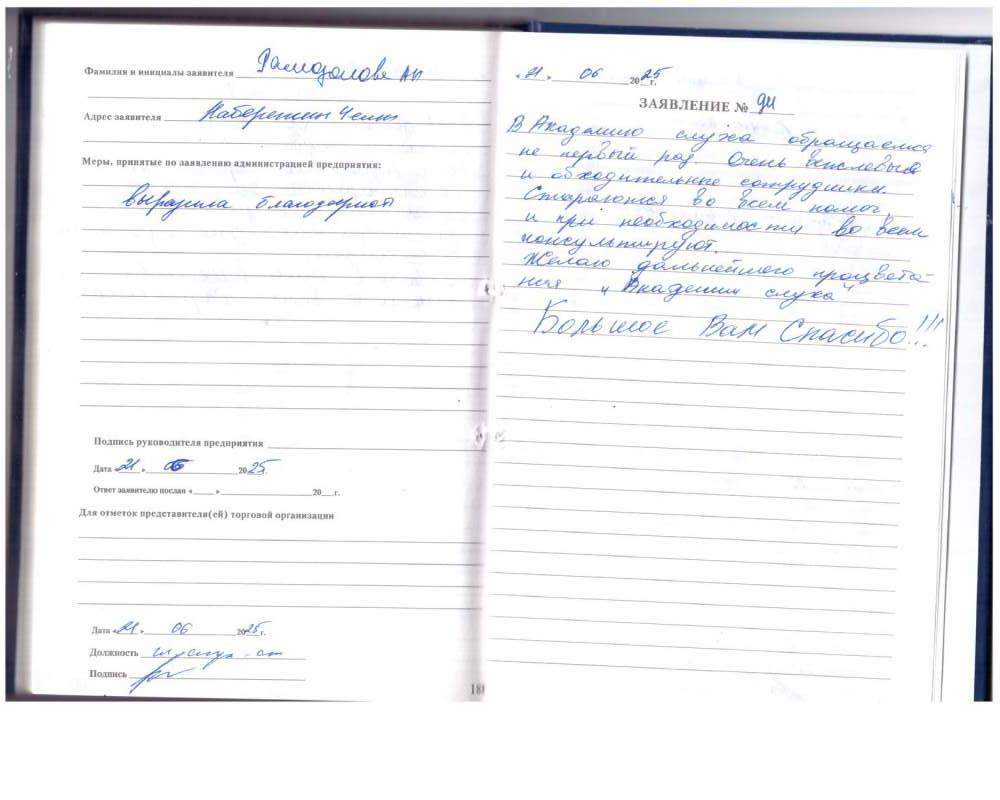 Фамилия и инициалы заявителя
Адрес заявителя Набережные Челны
Меры, принятые по заявлению администрацией предприятия:
выразила благодарность
Подпись руководителя предприятия
Дата «21» 06 2025г.
Ответ заявителю послан «___» ___ 20__г.
Для отметок представители(ей) торговой организации
Дата «21» 06 2025г.
Должность
Подпись
«21» 06 2025г.
ЗАЯВЛЕНИЕ № 94
В Академию слуха обращаемся
не первый раз Очень вежливые
и обходительные сотрудники.
Стараются во всем помочь,
и при необходимости во всем
консультируют.
Желаю дальнейшего процвета-
ния „Академии слуха"
Большое Вам Спасибо!!!